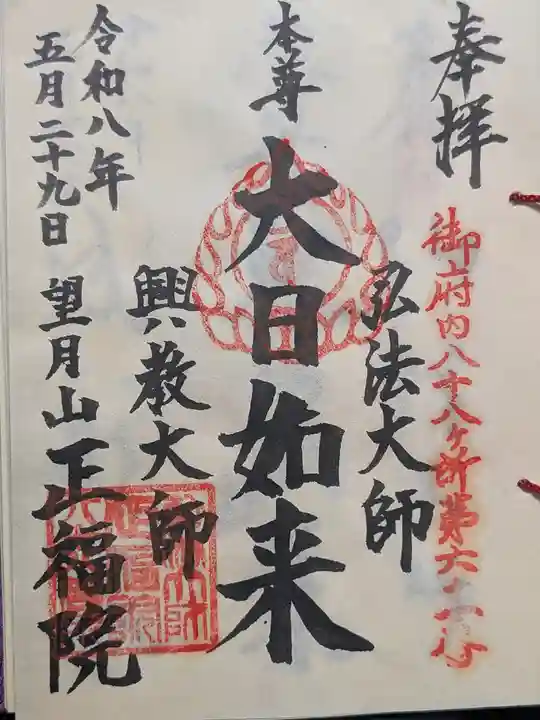 奉拝
御府内八十八ヶ所第六十一番
弘法大師
本尊
大日如来
興教大師
令和八年
五月二十九日
望月山
正福院